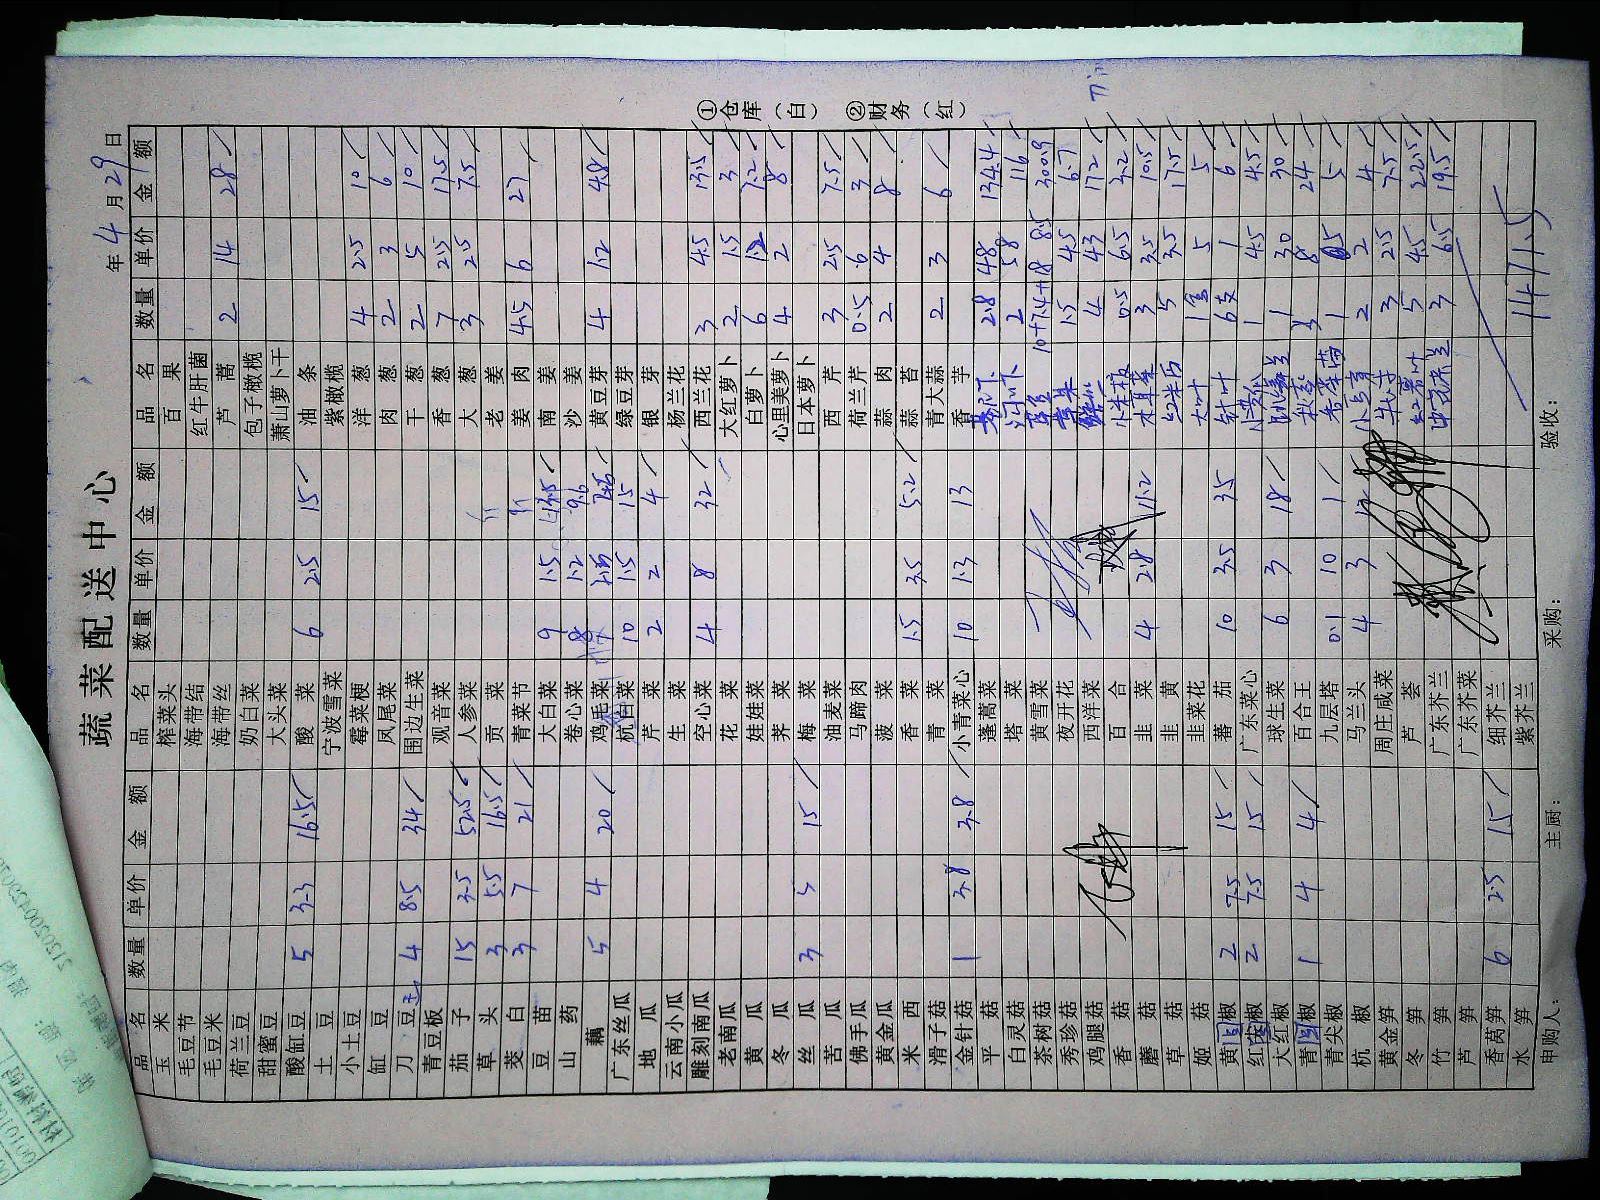 蔬菜配送中心
年 4 月 29 日
品名 数量 单价 金额 品名 数量 单价 金额 品名 数量 单价 金额
玉米 榨菜头 百果
毛豆节 海带结 红牛肝菌
毛豆米 海带丝 芦蒿 2 14 28
荷兰豆 奶白菜 包子橄榄
甜蜜豆 大头菜 萧山萝卜干
酸缸豆 5 3.3 16.5 酸菜 6 2.5 15 油条
土豆 宁波雪菜 紫橄榄
小土豆 霉菜梗 洋葱 4 2.5 10
缸豆 凤尾菜 肉葱 2 3 6
刀豆 4 8.5 34 围边生菜 干葱 2 5 10
青豆板 观音菜 香葱 7 2.5 17.5
茄子 15 3.5 52.5 人参菜 大葱 3 2.5 7.5
草头 3 5.5 16.5 贡菜 老姜
茭白 3 7 21 青菜节 姜肉 4.5 6 27
豆苗 大白菜 9 1.5 13.5 南姜
山药 卷心菜 8 1.2 9.6 沙姜
藕 5 4 20 鸡毛菜 黄豆芽 4 1.2 4.8
广东丝瓜 杭白菜 10 1.5 15 绿豆芽
地瓜 芹菜 2 2 4 银芽
云南小瓜 生菜 杨兰花
雕刻南瓜 空心菜 4 8 32 西兰花 3 4.5 13.5
老南瓜 花菜 大红萝卜 2 1.5 3
黄瓜 娃娃菜 白萝卜 6 1.2 7.2
冬瓜 荠菜 心里美萝卜 4 2 8
丝瓜 3 5 15 梅菜 日本萝卜
苦瓜 油麦菜 西芹 3 2.5 7.5
佛手瓜 马蹄肉 荷兰芹 0.5 6 3
黄金瓜 菠菜 蒜肉 2 4 8
米西 香菜 1.5 3.5 5.2 蒜苔
滑子菇 青菜 青大蒜 2 3 6
金针菇 1 3.8 3.8 小青菜心 10 1.3 13 香芋
平菇 蓬蒿菜 2.8 48 134.4
白灵菇 塔菜 2 58 116
茶树菇 黄雪菜 10+7.4+18 8.5 300.9
秀珍菇 夜开花 1.5 4.5 6.7
鸡腿菇 西洋菜 4 43 172
香菇 百合 0.5 6.5 3.2
蘑菇 韭菜 4 2.8 11.2 木耳菜 3 3.5 10.5
草菇 韭黄 5 3.5 17.5
姬菇 韭菜花 大叶 1盒 5 5
黄圆椒 2 7.5 15 蕃茄 10 3.5 35 针叶 6支 1 6
红尖椒 2 7.5 15 广东菜心 1 4.5 4.5
大红椒 球生菜 6 3 18 1 30 30
青圆椒 1 4 4 百合王 秋葵 3 8 24
青尖椒 九层塔 0.1 10 1 1 5 5
杭椒 马兰头 4 3 2 2 4
黄金笋 周庄咸菜 3 2.5 7.5
冬笋 芦荟 红薯叶 5 4.5 22.5
竹笋 广东芥兰 中芥兰 3 6.5 19.5
芦笋 广东芥菜
香莴笋 6 2.5 15 细芥兰
水笋 紫芥兰 1471.5
申购人: 主厨: 采购: 验收:
①仓库(白) ②财务(红)